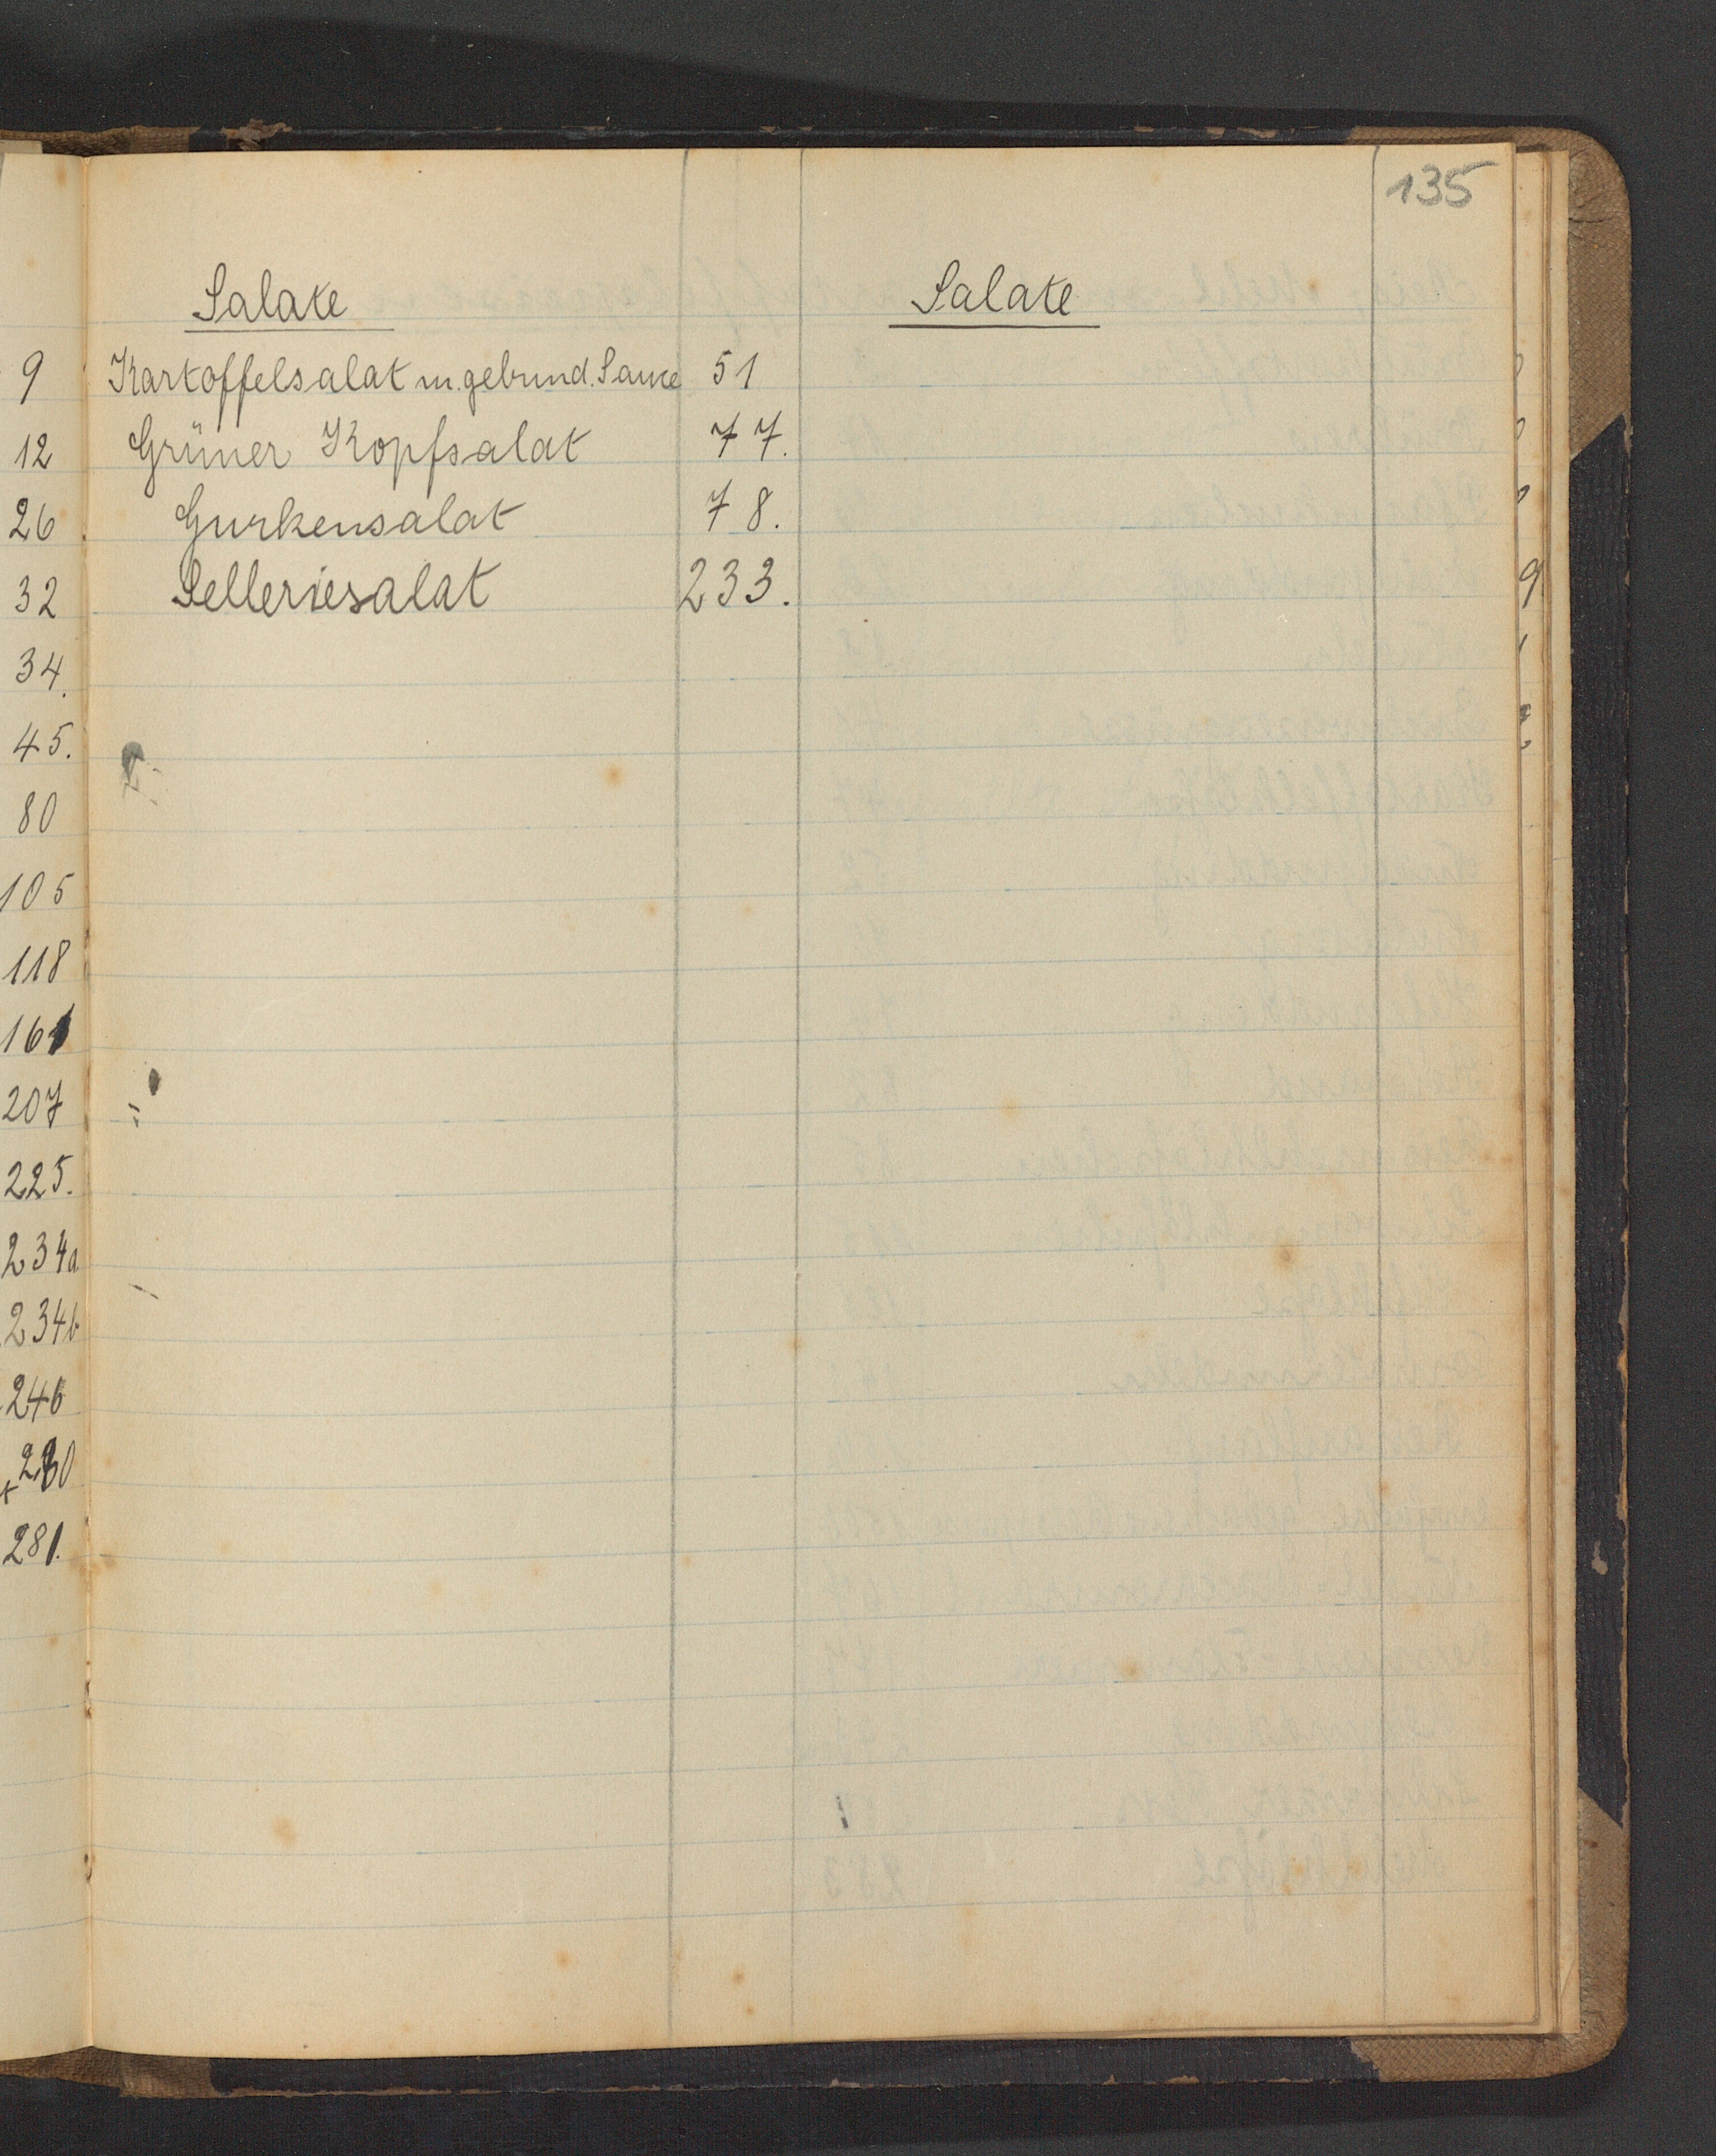 135
Salate
Kartoffelsalat m. gebund. Sauce 51
Grüner Kopfsalat 77.
Gurkensalat 78.
Selleriesalat 233.
Salate
9
12
26
32
34.
45.
80
105
118
161
207
225.
234a
234b
246
281.